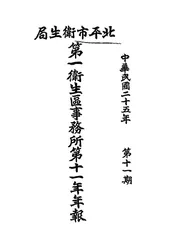 北平市衛生局
第一衛生區事務所第十一年年報
中華民國二十五年
第十一期